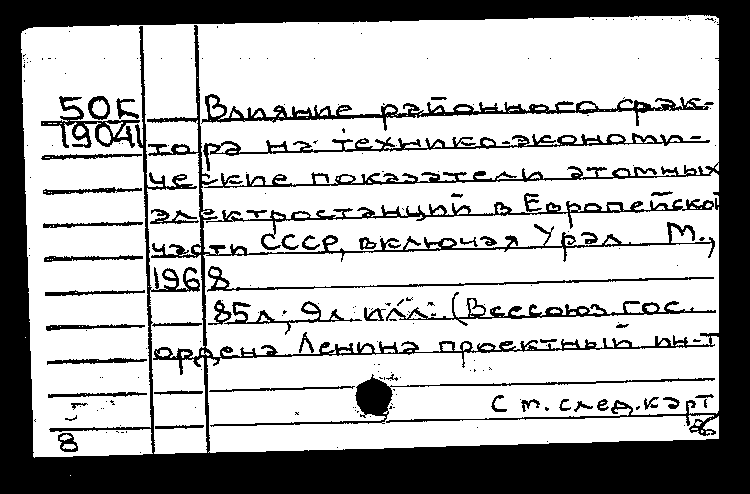 50К
19041
Влияние районного фак-
тора на технико-экономи-
ческие показатели атомных
электростанций в Европейской
части СССР, включая Урал. М.,
1968.
85л; 9л. илл. (Всесоюз. гос.
ордена Ленина проектный ин-т
См. след. карт
8